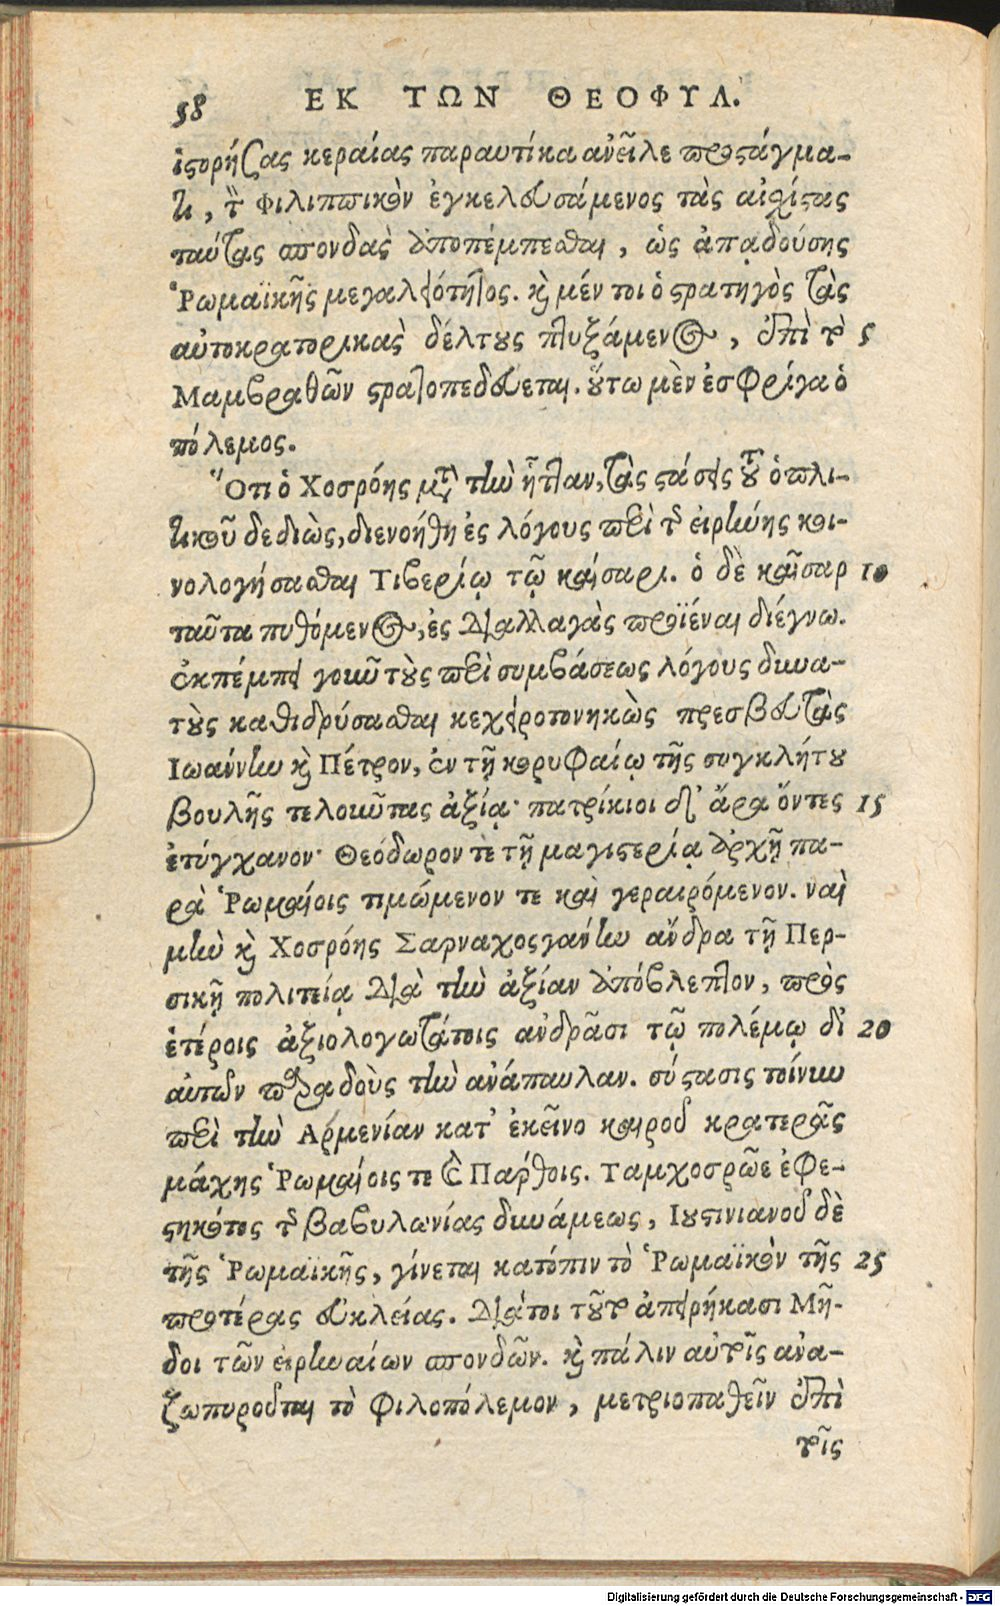 58 ΕΚ ΤΩΝ ΘΕΟΦΥΛ.
ἱστορήσας κεραίας παραυτίκα ἀνεῖλε προστάγμα-
τι, τὸν Φιλιππικὸν ἐγκελευσάμενος τὰς αἰσχίστας
ταύτας σπονδὰς ἀποπέμπεσθαι, ὡς ἀπᾳδούσης
Ῥωμαϊκῆς μεγαλειότητος. καὶ μέν τοι ὁ στρατηγὸς τὰς
αὐτοκρατορικὰς δέλτους πτυξάμενος, ἐπὶ τὸ 5
Μαμβραθῶν στρατοπεδεύεται. οὕτω μὲν ἐσφρίγα ὁ
πόλεμος.
Ὅτι ὁ Χοσρόης μετὰ τὴν ἧτταν, τὰς στάσεις τοῦ ὁπλι-
τικοῦ δεδιὼς, διενοήθη ἐς λόγους περὶ τῆς εἰρήνης κοι-
νολογήσασθαι Τιβερίῳ τῷ καίσαρι. ὁ δὲ καῖσαρ 10
ταῦτα πυθόμενος, ἐς διαλλαγὰς προϊέναι διέγνω.
ἐκπέμπει γοῦν τοὺς περὶ συμβάσεως λόγους δυνα-
τοὺς καθιδρύσασθαι κεχειροτονηκὼς πρεσβευτὰς
Ἰωάννην καὶ Πέτρον, ἐν τῇ κορυφαίῳ τῆς συγκλήτου
βουλῆς τελοῦντας ἀξίᾳ· πατρίκιοι δ' ἄρα ὄντες 15
ἐτύγχανον· Θεόδωρον τε τῇ μαγιστερίᾳ ἀρχῇ πα-
ρὰ Ῥωμαίοις τιμώμενον τε καὶ γεραιρόμενον. ναὶ
μὴν καὶ Χοσρόης Σαρναχοσγάνην ἄνδρα τῇ Περ-
σικῇ πολιτείᾳ διὰ τὴν ἀξίαν ἀπόβλεπτον, πρὸς
ἑτέροις ἀξιολογωτάτοις ἀνδρᾶσι τῷ πολέμῳ δι' 20
αὐτῶν παραδοὺς τὴν ἀνάπαυλαν. σύστασις τοίνυν
περὶ τὴν Ἀρμενίαν κατ' ἐκεῖνο καιροῦ κρατερᾶς
μάχης Ῥωμαίοις τε καὶ Πάρθοις. Ταμχοσρῶε ἐφε-
στηκότος τῆς βαβυλωνίας δυνάμεως, Ἰουστινιανοῦ δὲ
τῆς Ῥωμαϊκῆς, γίνεται κατόπιν τὸ Ῥωμαϊκὸν τῆς 25
προτέρας εὐκλείας. διάτοι τοῦτο ἀπειρήκασι Μῆ-
δοι τῶν εἰρηναίων σπονδῶν. καὶ πάλιν αὐτοῖς ἀνα-
ζωπυροῦται τὸ φιλοπόλεμον, μετριοπαθεῖν ἐπὶ
τοῖς
Digitalisierung gefördert durch die Deutsche Forschungsgemeinschaft - DFG